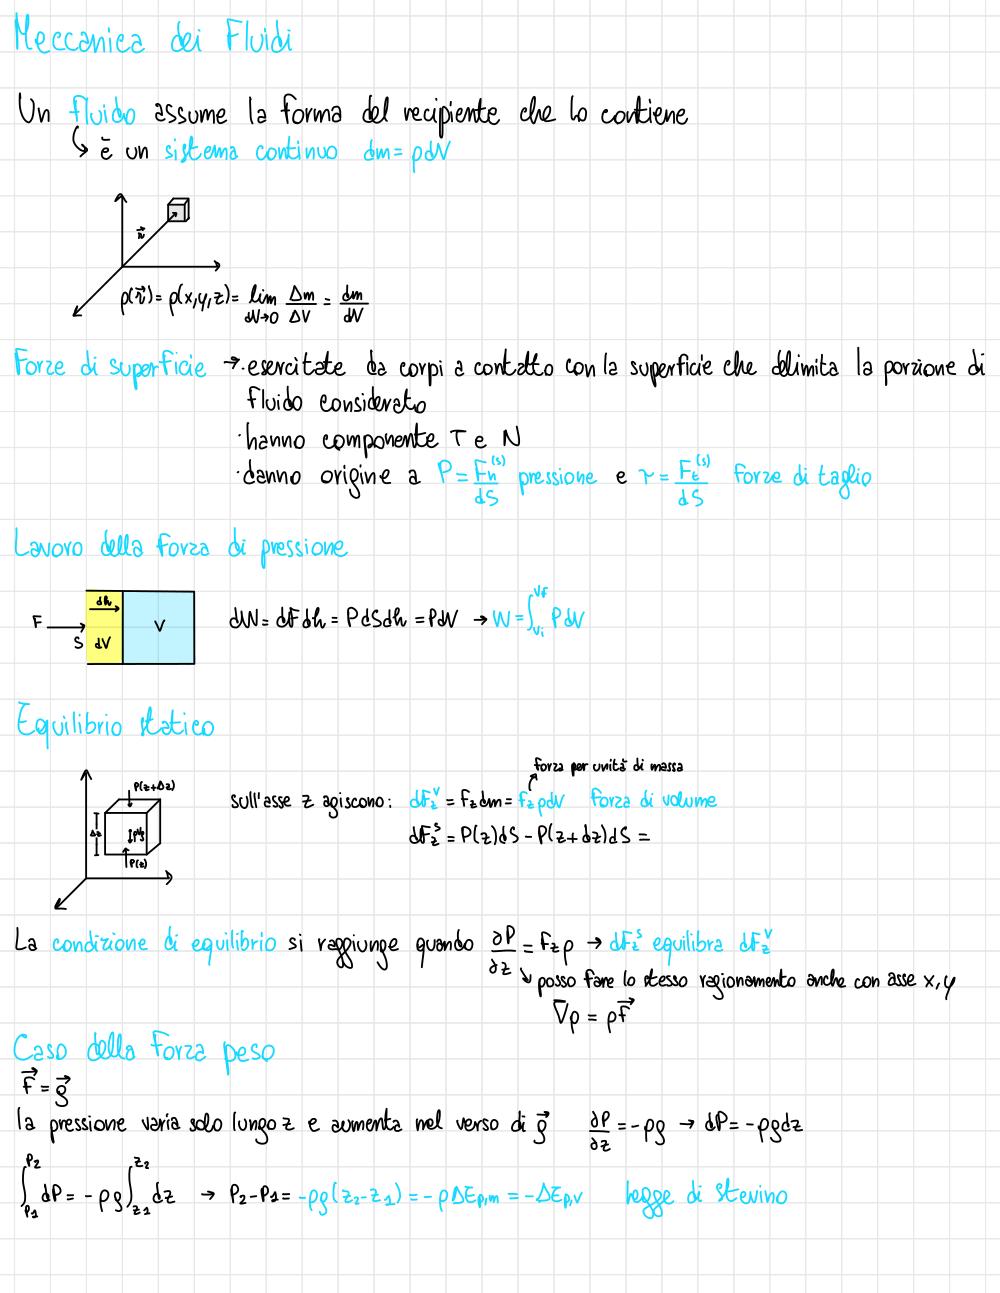 Meccanica dei Fluidi
Un fluido assume la forma del recipiente che lo contiene
↳ è un sistema continuo dm = ρdV
r⃗
ρ(r⃗) = ρ(x,y,z) = lim dV→0 Δm/ΔV = dm/dV
Forze di superficie → · esercitate da corpi a contatto con la superficie che delimita la porzione di
fluido considerato
· hanno componente T e N
· danno origine a P = Fₙ⁽ˢ⁾/dS pressione e τ = Fₜ⁽ˢ⁾/dS forze di taglio
Lavoro della forza di pressione
F S dh dV V
dW = dF dh = P dS dh = P dV → W = ∫_{Vi}^{Vf} P dV
Equilibrio statico
forza per unità di massa
P(z+Δz)
Sull'asse z agiscono: dF_z^V = f_z dm = f_z ρdV forza di volume
dF_z^S = P(z)dS - P(z+dz)dS =
Δz
P(z)
La condizione di equilibrio si raggiunge quando ∂P/∂z = f_z ρ → dF_z^S equilibra dF_z^V
↳ posso fare lo stesso ragionamento anche con asse x,y
∇p = ρf⃗
Caso della forza peso
f⃗ = g⃗
la pressione varia solo lungo z e aumenta nel verso di g⃗ ∂P/∂z = -ρg → dP = -ρgdz
∫_{P1}^{P2} dP = -ρg ∫_{z1}^{z2} dz → P2-P1 = -ρg(z2-z1) = -ρΔEp,m = -ΔEp,v legge di stevino